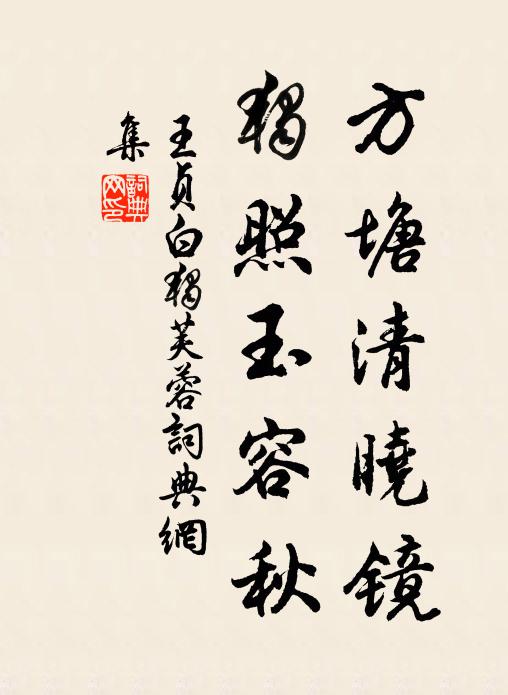 方塘清曉鏡
獨照玉容秋
王貞白獨芙蓉詞典網
集
詞典網印